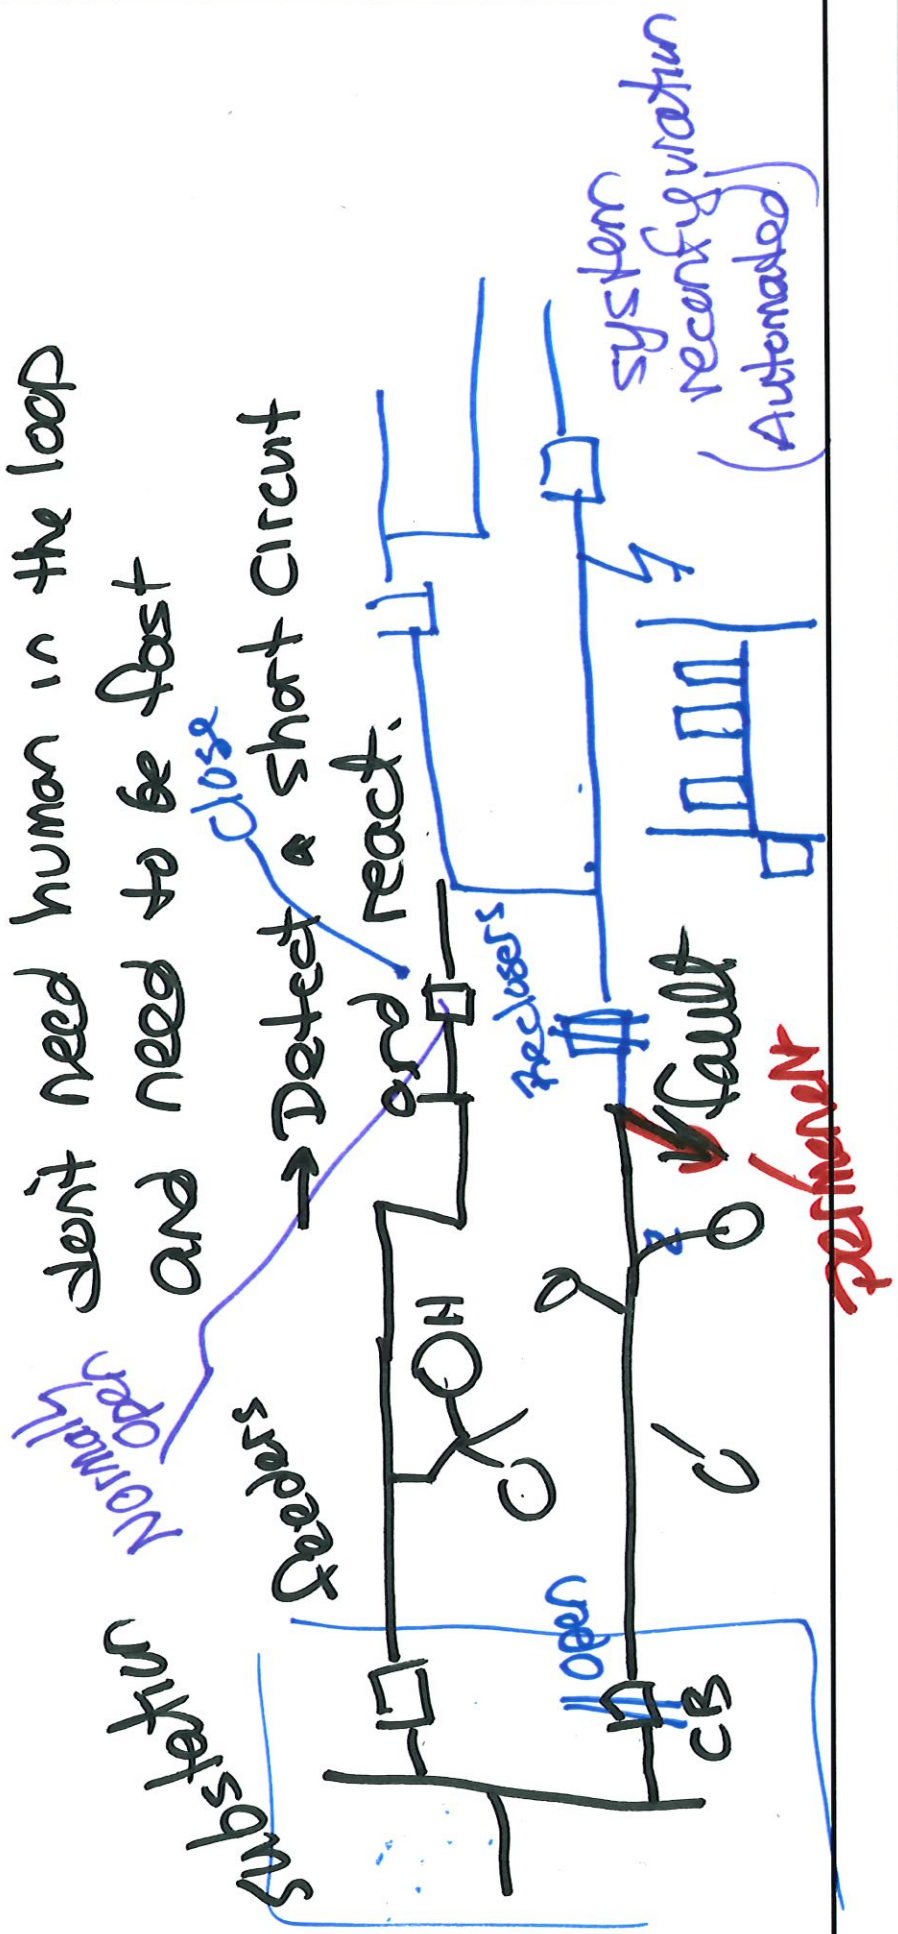 don't need human in the loop
and need to be fast
→ Detect a short circuit
and react.
close
Normally
open
substatiun
feeders
H
reclosers
open
CB
fault
permanent
system
reconfiguration
(Automated)